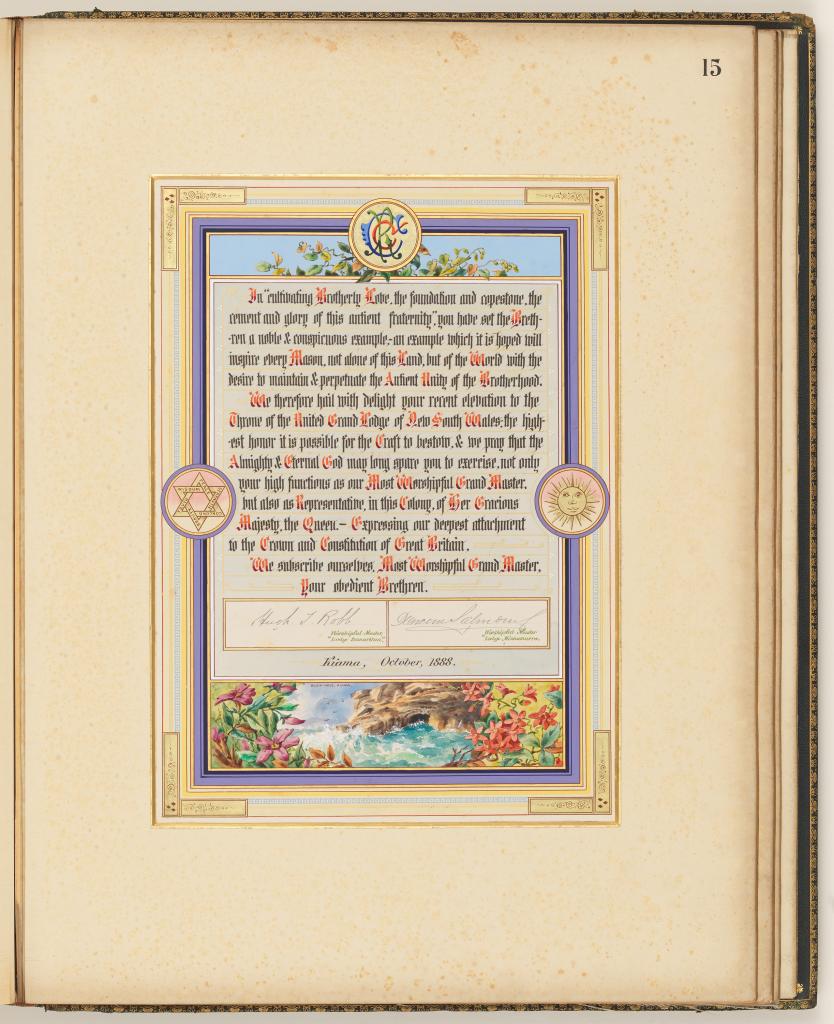 15
In "cultivating Brotherly Love, the foundation and copestone, the
cement and glory of this antient fraternity", you have set the Breth-
-ren a noble & conspicuous example,-an example which it is hoped will
inspire every Mason, not alone of this Land, but of the World with the
desire to maintain & perpetuate the Antient Unity of the Brotherhood.
We therefore hail with delight your recent elevation to the
Throne of the United Grand Lodge of New South Wales-the high-
-est honor it is possible for the Craft to bestow, & we pray that the
Almighty & Eternal God may long spare you to exercise, not only
your high functions as our Most Worshipful Grand Master,
but also as Representative, in this Colony, of Her Gracious
Majesty, the Queen.- Expressing our deepest attachment
to the Crown and Constitution of Great Britain.
We subscribe ourselves, Most Worshipful Grand Master,
Your obedient Brethren.
Hugh T Robb
Worshipful Master,
"Lodge
Salmon
Worshipful Master
"Lodge
Kiama, October, 1888.